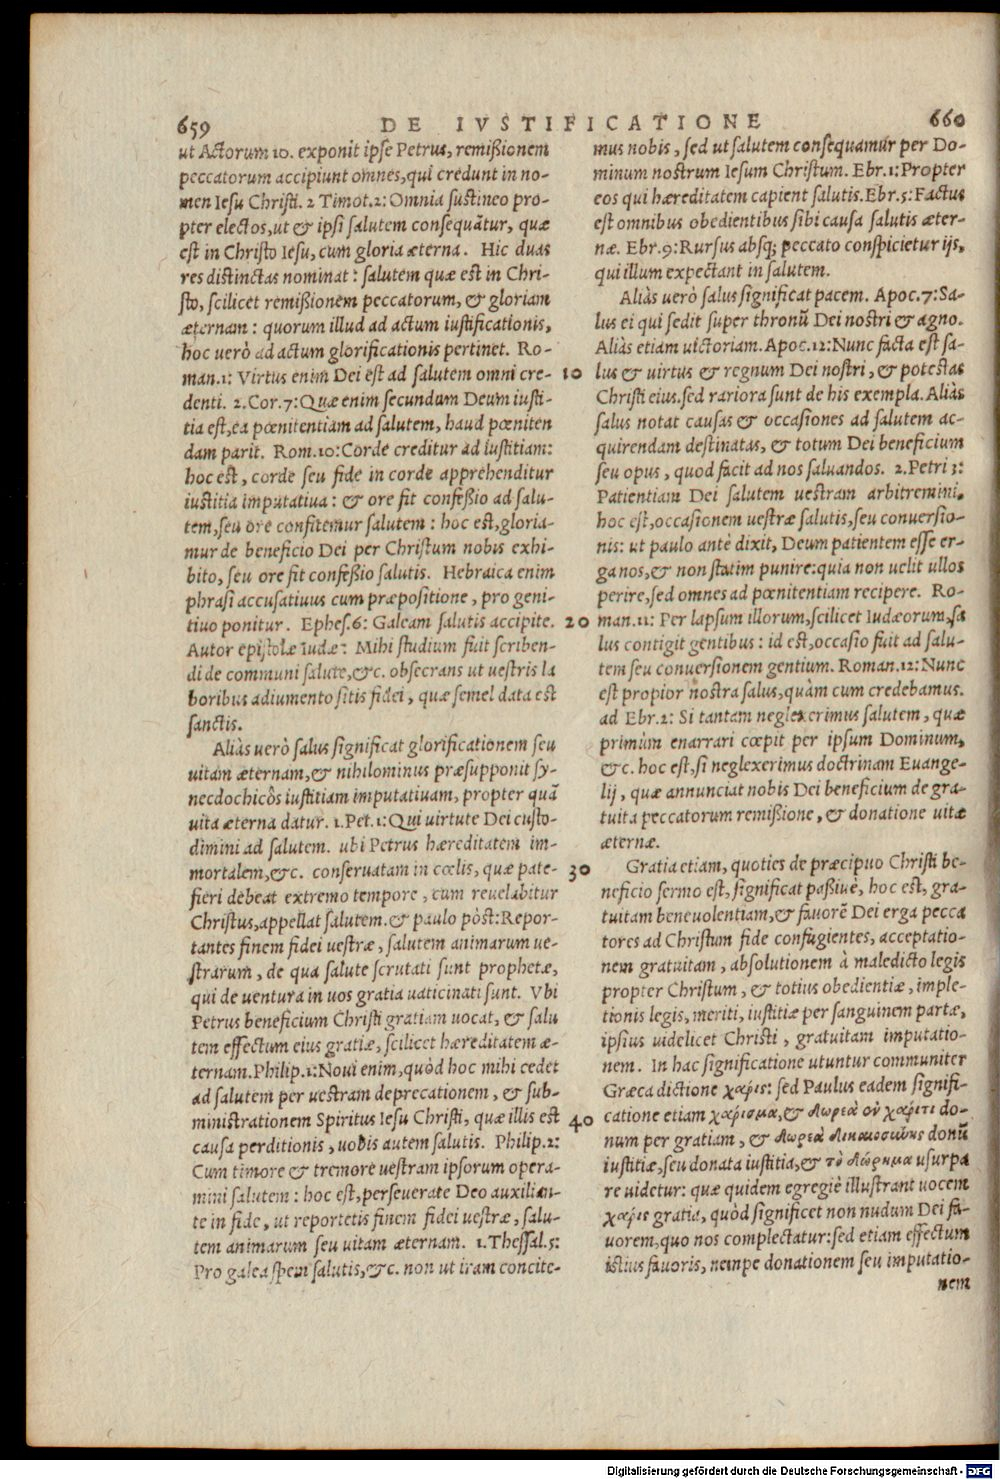 659
DE IVSTIFICATIONE
660
ut Actorum 10. exponit ipse Petrus, remißionem
peccatorum accipiunt omnes, qui credunt in no-
men Iesu Christi. 2 Timot.2: Omnia sustineo pro-
pter electos, ut & ipsi salutem consequātur, quæ
est in Christo Iesu, cum gloria æterna. Hic duas
res distinctas nominat: salutem quæ est in Chri-
sto, scilicet remißionem peccatorum, & gloriam
æternam: quorum illud ad actum iustificationis,
hoc uerò ad actum glorificationis pertinet. Ro-
man.1: Virtus enim Dei est ad salutem omni cre-
denti. 2.Cor.7: Quæ enim secundum Deum iusti-
tia est, ea pœnitentiam ad salutem, haud pœniten
dam parit. Rom.10: Corde creditur ad iustitiam:
hoc est, corde seu fide in corde apprehenditur
iustitia imputatiua: & ore fit confeßio ad salu-
tem, seu ore confitemur salutem: hoc est, gloria-
mur de beneficio Dei per Christum nobis exhi-
bito, seu ore fit confeßio salutis. Hebraica enim
phrasi accusatiuus cum præpositione, pro geni-
tiuo ponitur. Ephes.6: Galeam salutis accipite.
Autor epistolæ Iudæ: Mihi studium fuit scriben-
di de communi salute, &c. obsecrans ut uestris la
boribus adiumento sitis fidei, quæ semel data est
sanctis.
Aliàs uerò salus significat glorificationem seu
uitam æternam, & nihilominus præsupponit sy-
necdochicῶs iustitiam imputatiuam, propter quā
uita æterna datur. 1.Pet.1: Qui uirtute Dei custo-
dimini ad salutem. ubi Petrus hæreditatem im-
mortalem, &c. conseruatam in cœlis, quæ pate-
fieri debeat extremo tempore, cum reuelabitur
Christus, appellat salutem. & paulo pòst: Repor-
tantes finem fidei uestræ, salutem animarum ue-
strarum, de qua salute scrutati sunt prophetæ,
qui de uentura in uos gratia uaticinati sunt. Vbi
Petrus beneficium Christi gratiam uocat, & salu
tem effectum eius gratiæ, scilicet hæreditatem æ-
ternam. Philip.1: Noui enim, quòd hoc mihi cedet
ad salutem per uestram deprecationem, & sub-
ministrationem Spiritus Iesu Christi, quæ illis est
causa perditionis, uobis autem salutis. Philip.2:
Cum timore & tremore uestram ipsorum opera-
mini salutem: hoc est, perseuerate Deo auxilian-
te in fide, ut reportetis finem fidei uestræ, salu-
tem animarum seu uitam æternam. 1.Thessal.5:
Pro galea spem salutis, &c. non ut iram concite-
10
20
30
40
mus nobis, sed ut salutem consequamur per Do-
minum nostrum Iesum Christum. Ebr.1: Propter
eos qui hæreditatem capient salutis. Ebr.5: Factus
est omnibus obedientibus sibi causa salutis æter-
næ. Ebr.9: Rursus absq; peccato conspicietur ijs,
qui illum expectant in salutem.
Aliàs uerò salus significat pacem. Apoc.7: Sa-
lus ei qui sedit super thronū Dei nostri & agno.
Aliàs etiam uictoriam. Apoc.12: Nunc facta est sa-
lus & uirtus & regnum Dei nostri, & potestas
Christi eius. sed rariora sunt de his exempla. Aliàs
salus notat causas & occasiones ad salutem ac-
quirendam destinatas, & totum Dei beneficium
seu opus, quod facit ad nos saluandos. 2.Petri 3:
Patientiam Dei salutem uestram arbitremini,
hoc est, occasionem uestræ salutis, seu conuersio-
nis: ut paulo antè dixit, Deum patientem esse er-
ga nos, & non statim punire: quia non uelit ullos
perire, sed omnes ad pœnitentiam recipere. Ro-
man.11: Per lapsum illorum, scilicet Iudæorum, sa
lus contigit gentibus: id est, occasio fuit ad salu-
tem seu conuersionem gentium. Roman.12: Nunc
est propior nostra salus, quàm cum credebamus.
ad Ebr.2: Si tantam neglexerimus salutem, quæ
primùm enarrari cœpit per ipsum Dominum,
&c. hoc est, si neglexerimus doctrinam Euange-
lij, quæ annunciat nobis Dei beneficium de gra-
tuita peccatorum remißione, & donatione uitæ
æternæ.
Gratia etiam, quoties de præcipuo Christi be-
neficio sermo est, significat paßiuè, hoc est, gra-
tuitam beneuolentiam, & fauorē Dei erga pecca
tores ad Christum fide confugientes, acceptatio-
nem gratuitam, absolutionem à maledicto legis
propter Christum, & totius obedientiæ, imple-
tionis legis, meriti, iustitiæ per sanguinem partæ,
ipsius uidelicet Christi, gratuitam imputatio-
nem. In hac significatione utuntur communiter
Græca dictione χάρις: sed Paulus eadem signifi-
catione etiam χάρισμα, & δωρεὰ ἐν χάριτι do-
num per gratiam, & δωρεὰ δικαιοσύνης donū
iustitiæ, seu donata iustitia, & τὸ δώρημα usurpa
re uidetur: quæ quidem egregiè illustrant uocem
χάρις gratia, quòd significet non nudum Dei fa-
uorem, quo nos complectatur: sed etiam effectum
istius fauoris, nempe donationem seu imputatio-
nem
Digitalisierung gefördert durch die Deutsche Forschungsgemeinschaft - DFG